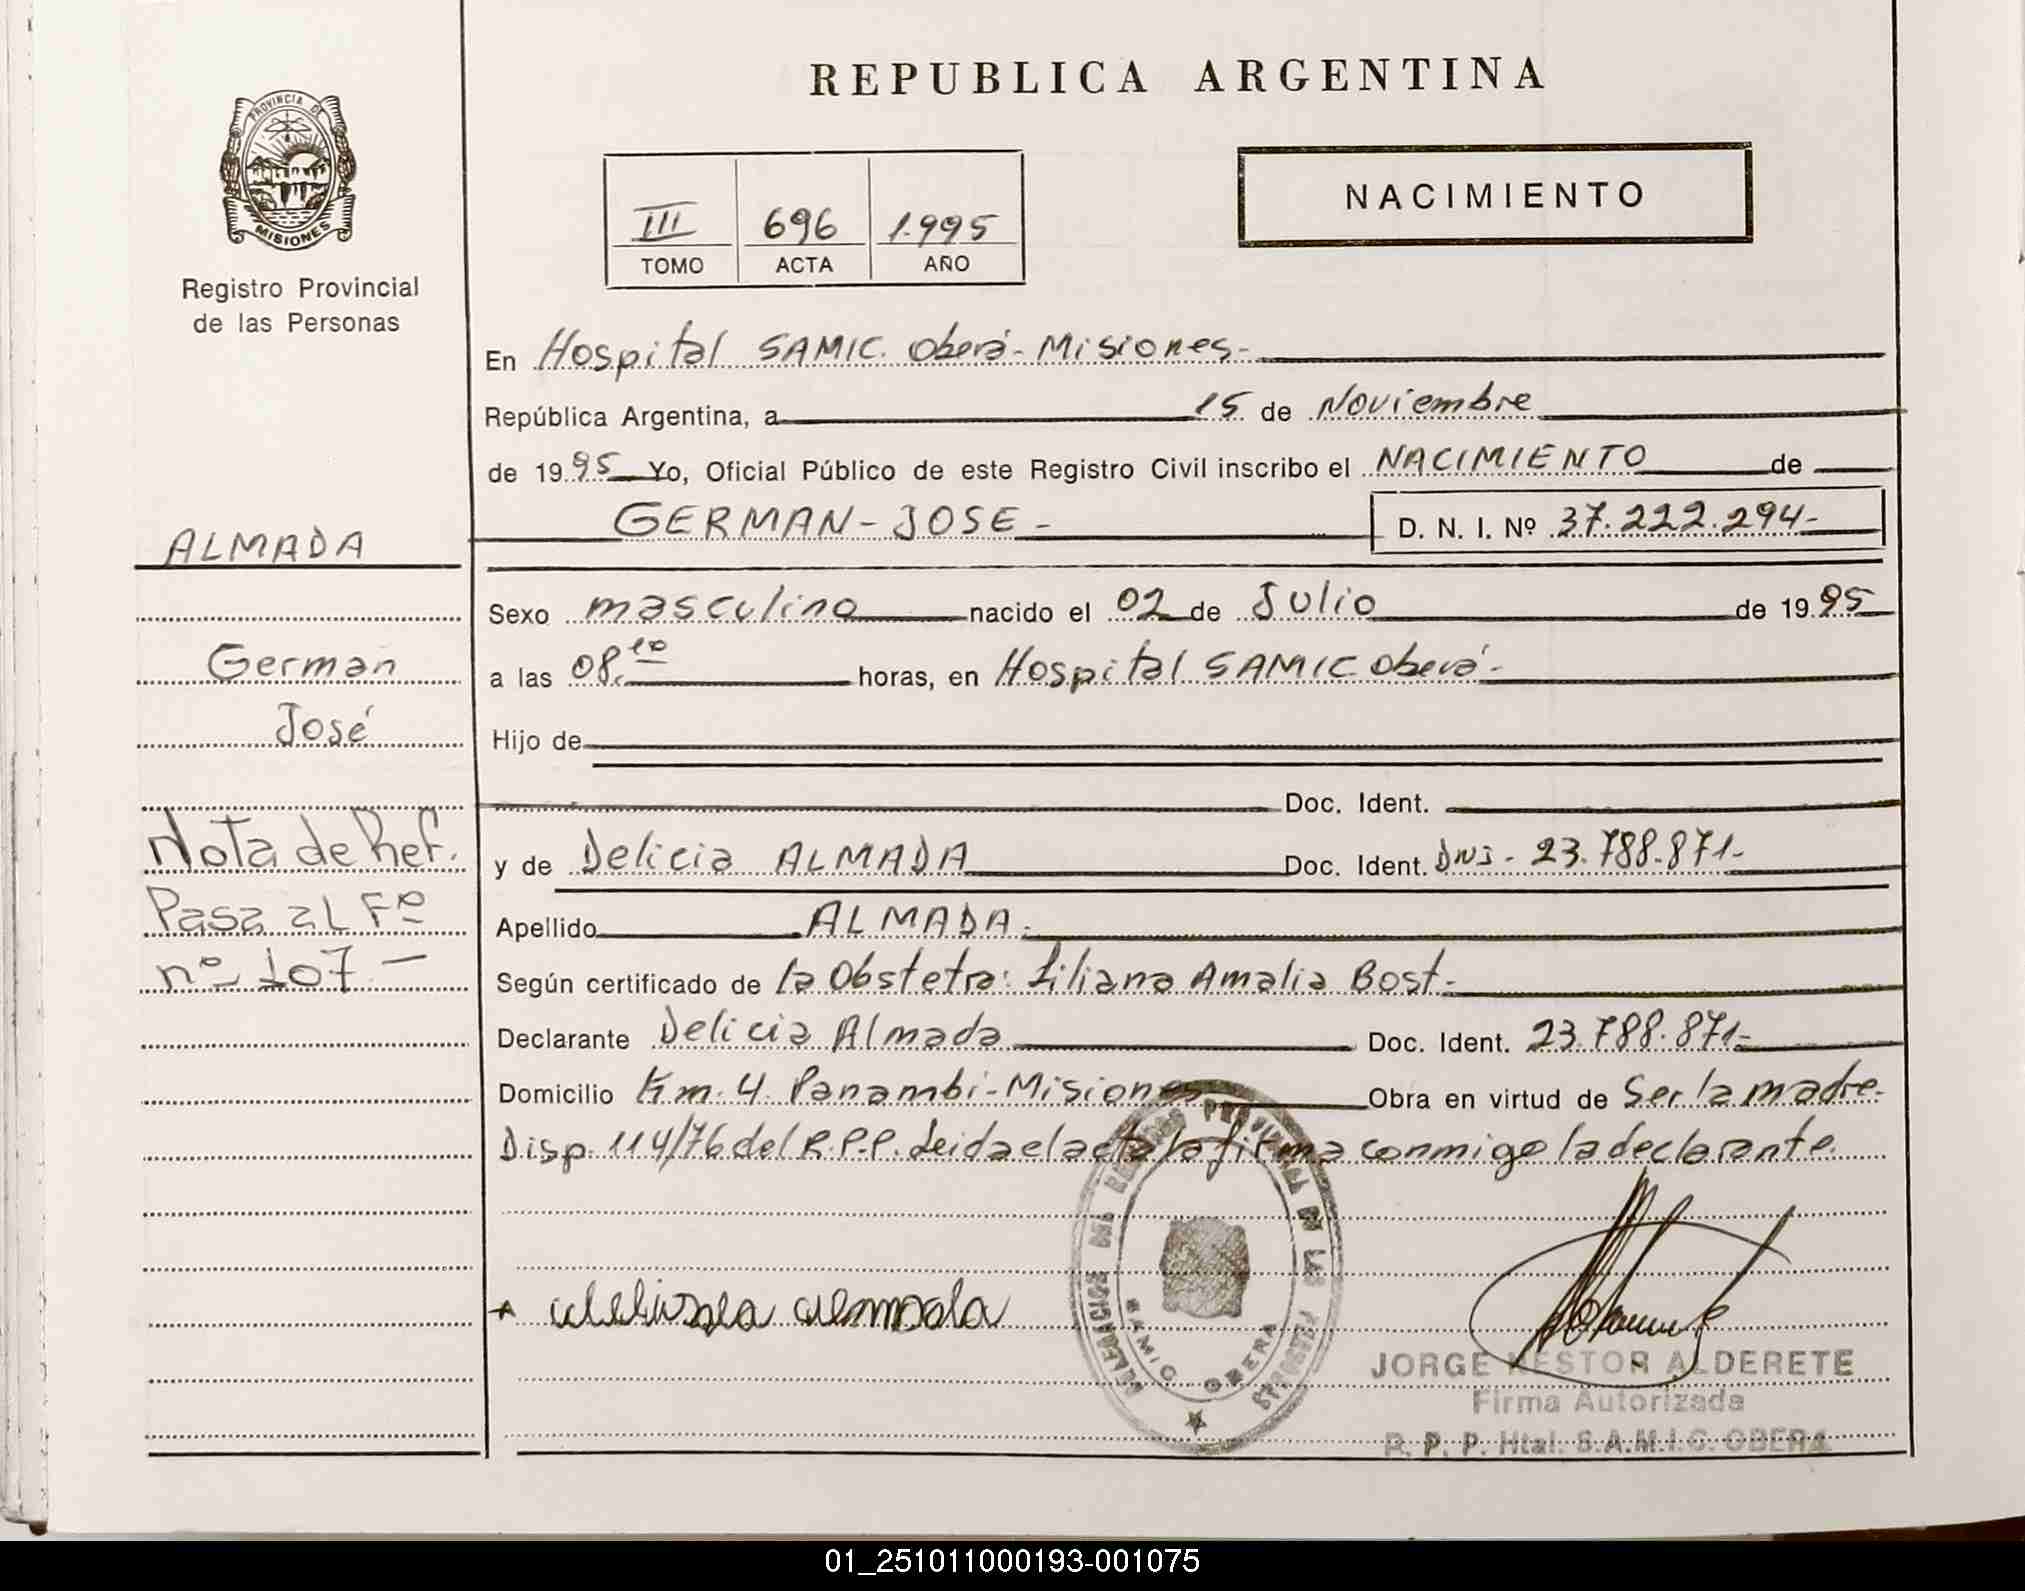 REPUBLICA ARGENTINA
PROVINCIA DE
MISIONES
Registro Provincial
de las Personas
III 696 1.995
TOMO ACTA AÑO
NACIMIENTO
En Hospital SAMIC. Oberá - Misiones -
República Argentina, a 15 de Noviembre
de 1995 Yo, Oficial Público de este Registro Civil inscribo el NACIMIENTO de
GERMAN - JOSE -
D. N. I. Nº 37.222.294-
Sexo masculino nacido el 02 de Julio de 1995
a las 08.10 horas, en Hospital SAMIC Oberá -
Hijo de
Doc. Ident.
y de Delicia ALMADA Doc. Ident. DNI - 23.788.871-
Apellido ALMADA.
Según certificado de la Obstetra: Liliana Amalia Bost -
Declarante Delicia Almada Doc. Ident. 23.788.871-
Domicilio Km. 4. Panambí - Misiones Obra en virtud de Ser la madre.
Disp. 114/76 del R.P.P. Leida el acta la firma conmigo la declarante.
ALMADA
German
José
Nota de Ref.
Pasa al Fº
nº 107. -
DELEGACION DEL REGISTRO PROVINCIAL DE LAS PERSONAS
SAMIC OBERA
JORGE NESTOR ALDERETE
Firma Autorizada
R. P. P. Htal. S.A.M.I.C. OBERA
01_251011000193-001075